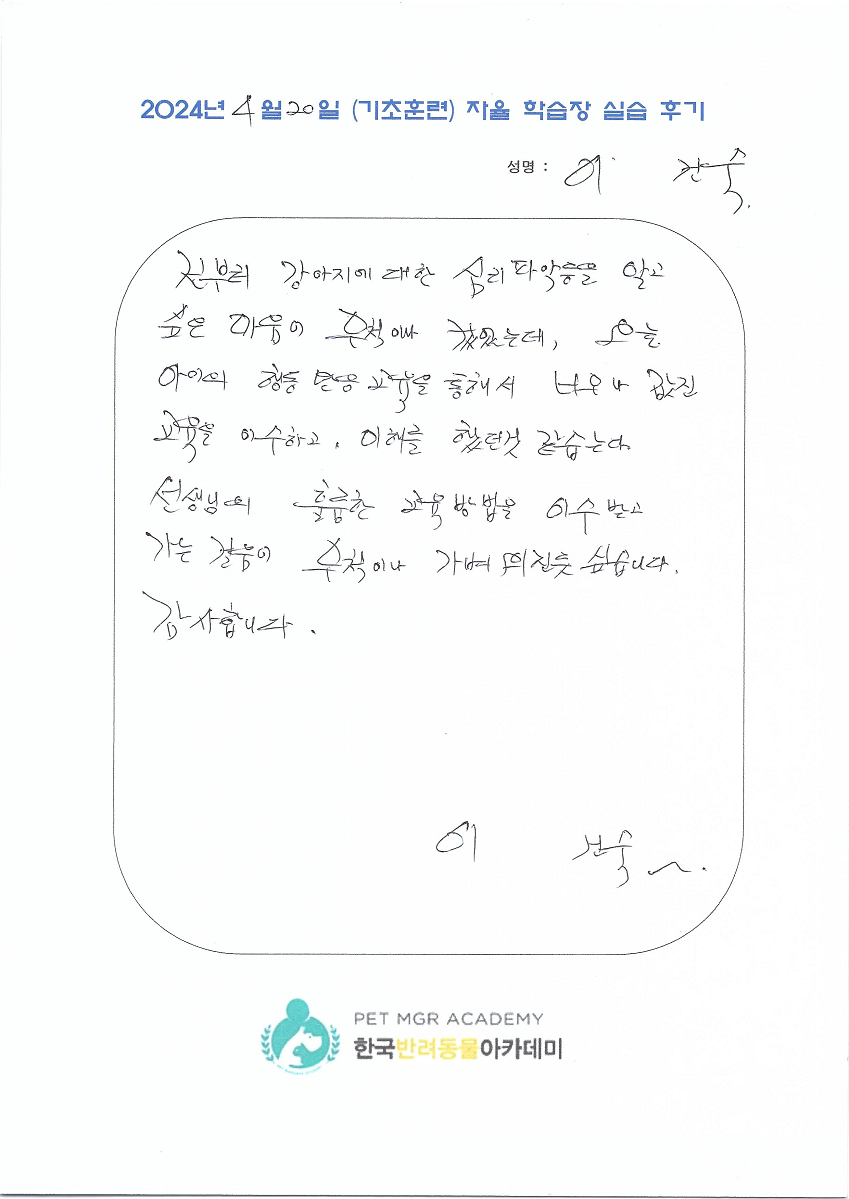 2024년 4월 20일 (기초훈련) 자율 학습장 실습 후기
성명 : 이
강아지에 대한 심리파악등을 알고
싶은 마음이 무척이나 컸었는데, 오늘
아이의 행동 반응 교육을 통해서 너무나 값진
교육을 이수하고, 이해를 했던것 같습니다.
선생님의 훌륭한 교육방법을 이수 받고
가는 걸음이 무척이나 가벼워진듯 싶습니다.
감사합니다.
이
PET MGR ACADEMY
한국반려동물아카데미